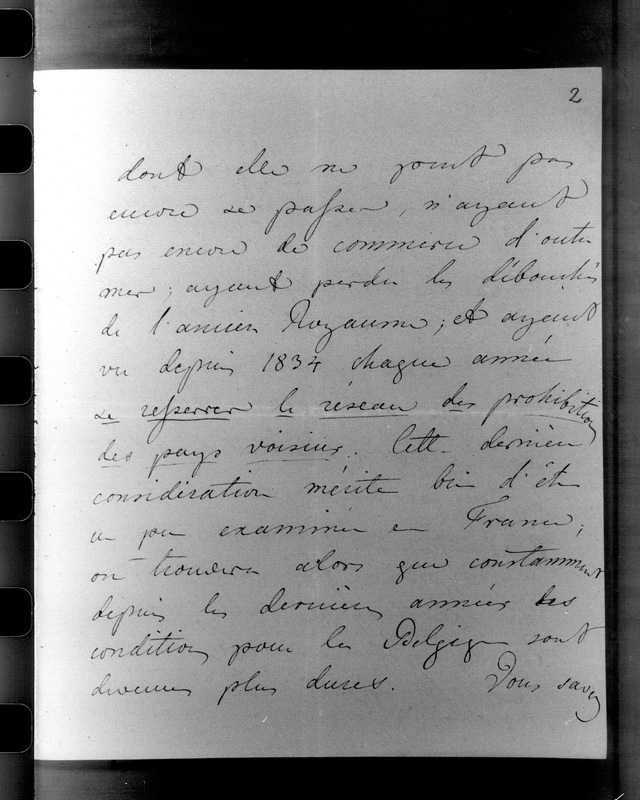 2
dont elle ne peut pas
encore se passer, n'ayant
pas encore de commerce d'outre
mer; ayant perdu les débouchés
de l'ancien Royaume; et ayant
vu depuis 1834 chaque année
se resserrer le réseau des prohibitions
des pays voisins. Cette dernière
considération mérite bien d'être
un peu examinée en France;
on trouvera alors que constamment
depuis les dernières années les
conditions pour la Belgique sont
devenues plus dures. Vous savez